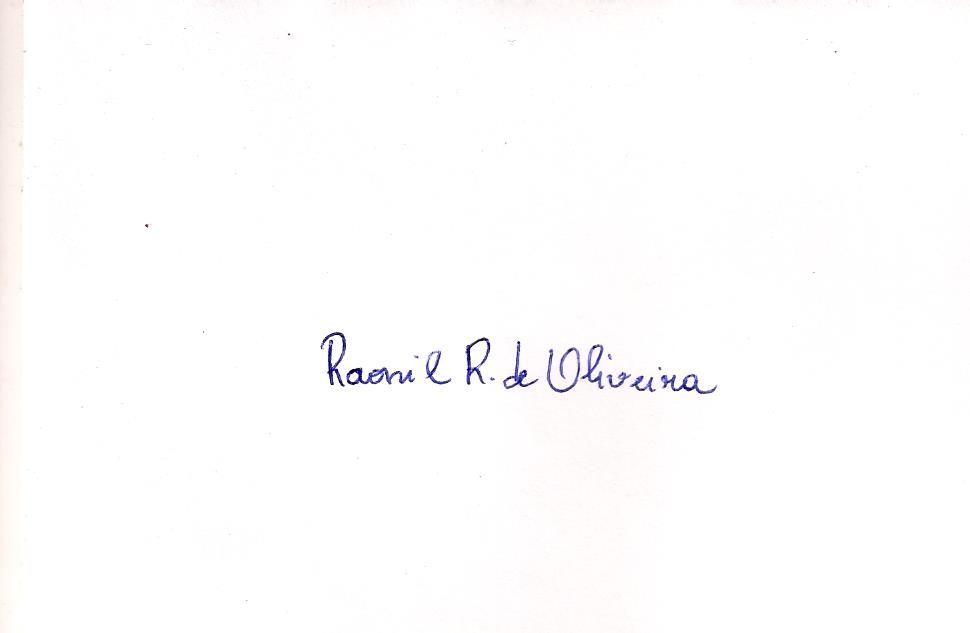 Raonil R. de Oliveira